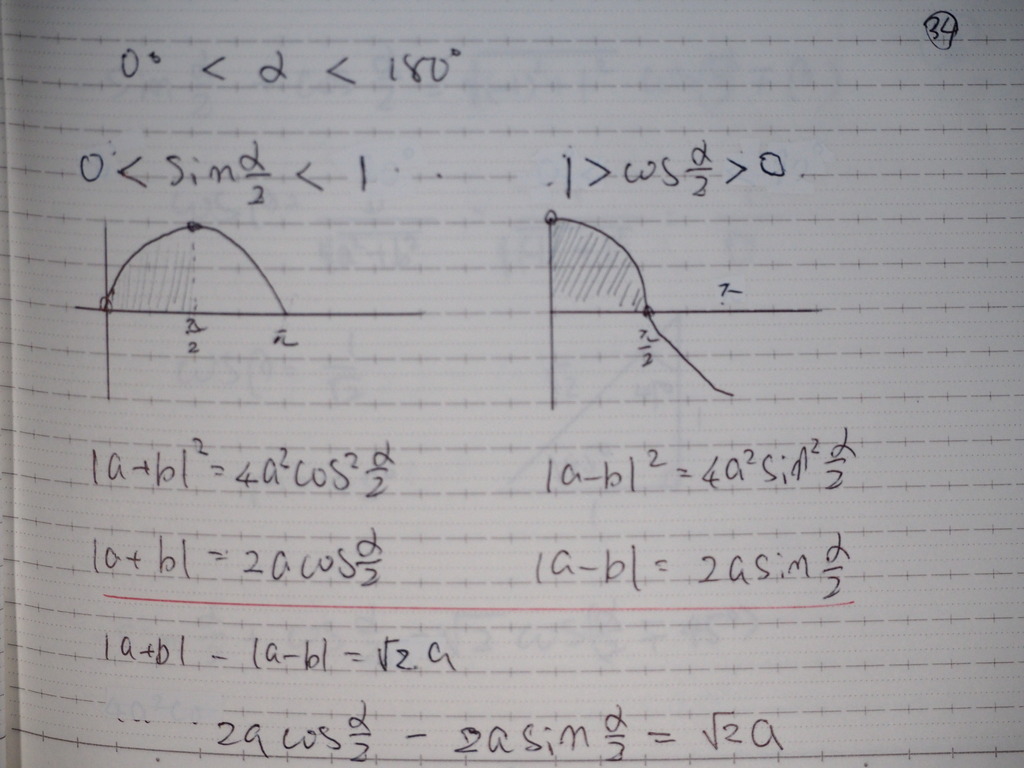 34
0° < α < 180°
0 < sin α/2 < 1 1 > cos α/2 > 0
π/2 π π/2 π
|a+b|² = 4a²cos² α/2 |a-b|² = 4a²sin² α/2
|a+b| = 2a cos α/2 |a-b| = 2a sin α/2
|a+b| - |a-b| = √2 a
2a cos α/2 - 2a sin α/2 = √2 a